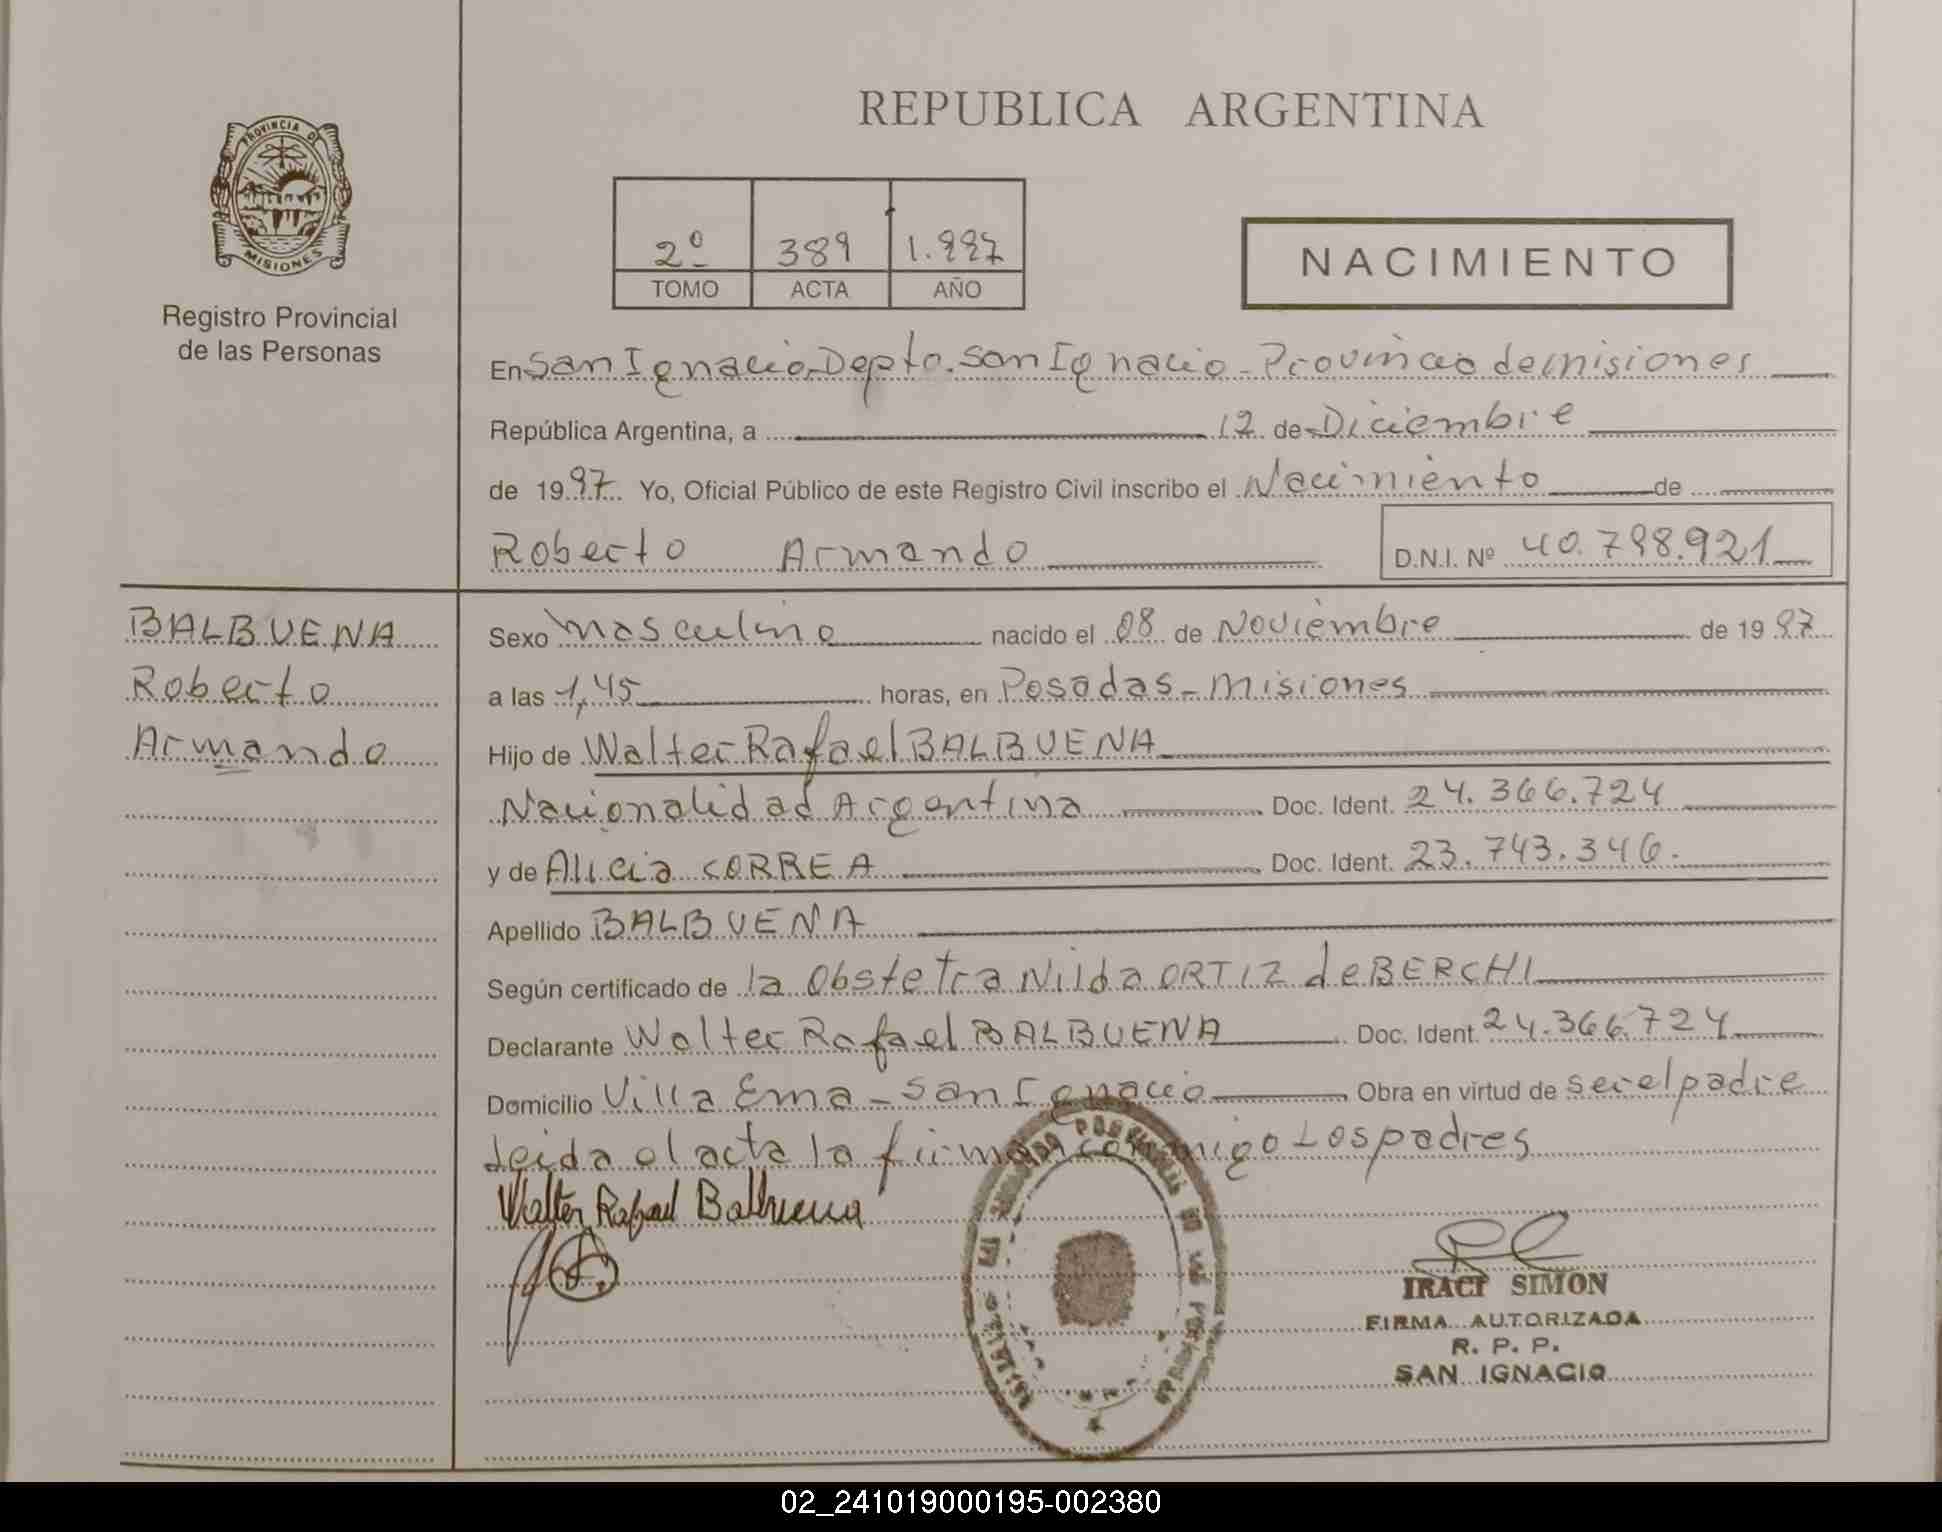 PROVINCIA DE
MISIONES
Registro Provincial
de las Personas
REPUBLICA ARGENTINA
2º 389 1.997
TOMO ACTA AÑO
NACIMIENTO
En San Ignacio, Depto. San Ignacio - Provincia de misiones
República Argentina, a 12 de Diciembre
de 1997 Yo, Oficial Público de este Registro Civil inscribo el Nacimiento de
Roberto Armando D.N.I. Nº 40.798.921
BALBUENA
Roberto
Armando
Sexo masculino nacido el 08 de Noviembre de 1997
a las 1,45 horas, en Posadas - misiones
Hijo de Walter Rafael BALBUENA
Nacionalidad Argentina Doc. Ident. 24.366.724
y de Alicia CORREA Doc. Ident. 23.743.346.
Apellido BALBUENA
Según certificado de la Obstetra Nilda ORTIZ de BERCHI
Declarante Walter Rafael BALBUENA Doc. Ident. 24.366.724
Domicilio Villa Ema - San Ignacio Obra en virtud de ser el padre
Leida el acta la firman conmigo Los padres
Walter Rafael Balbuena
IRACI SIMON
FIRMA AUTORIZADA
R. P. P.
SAN IGNACIO
02_241019000195-002380